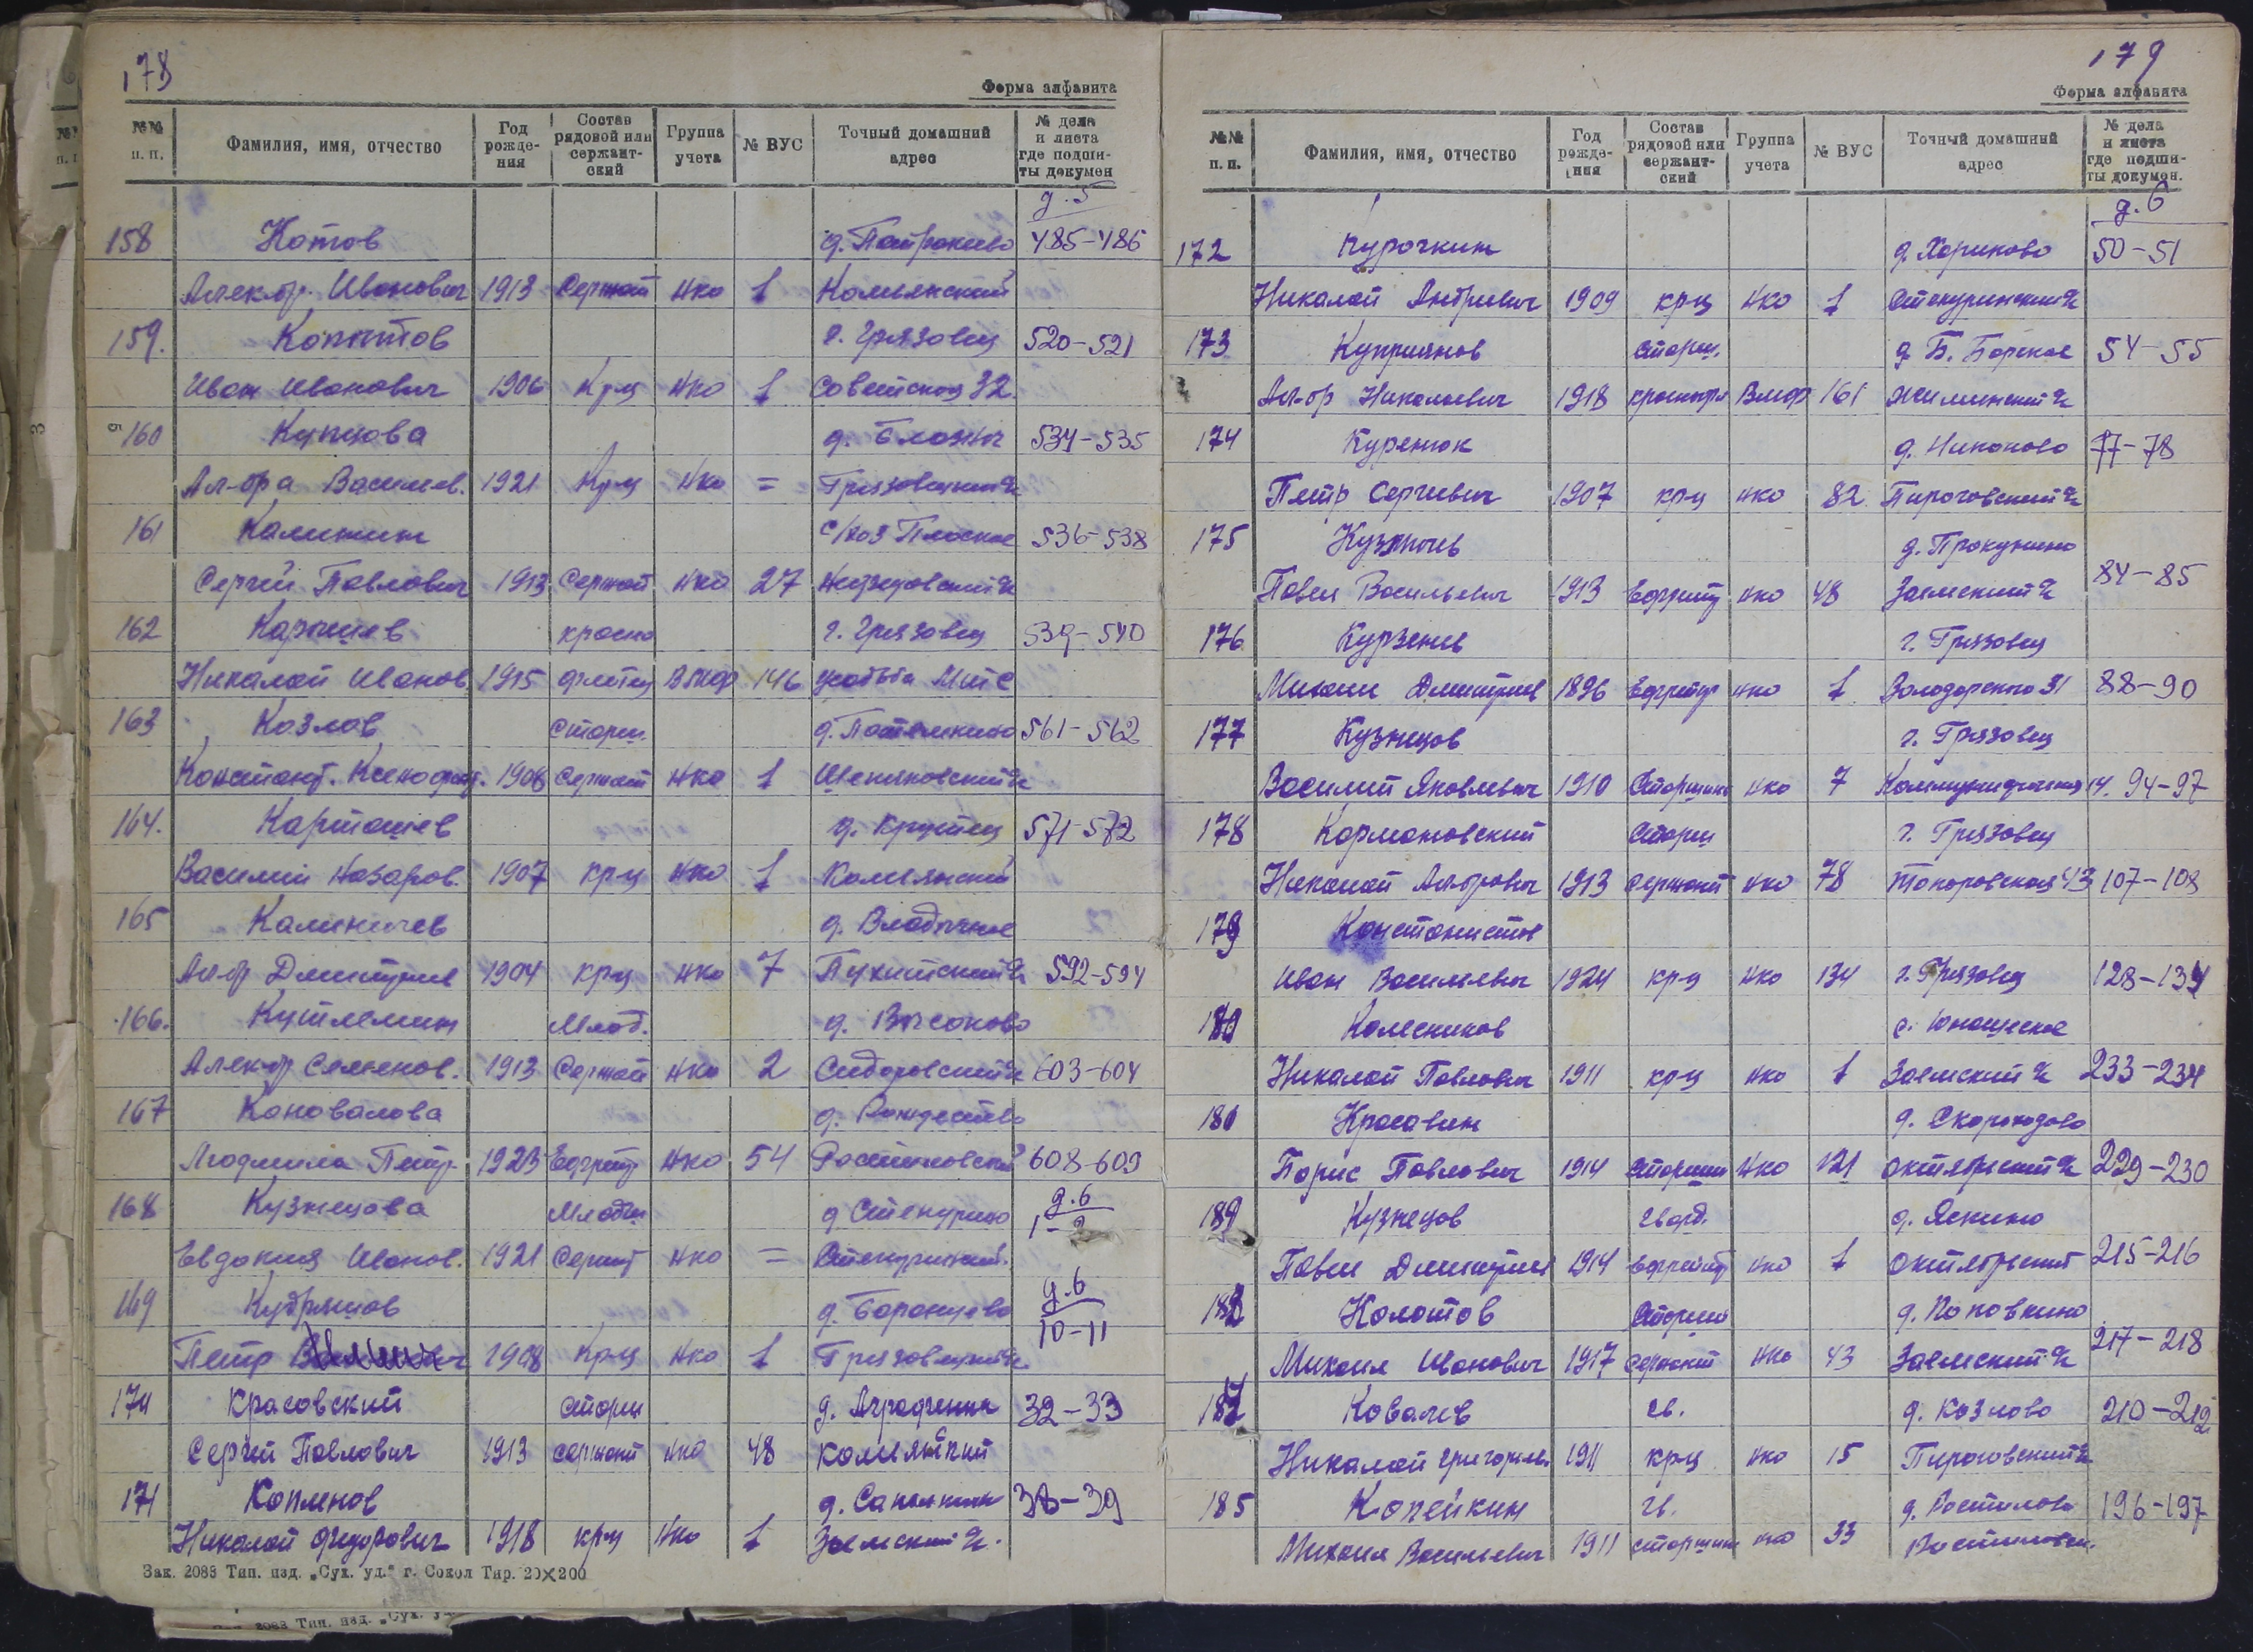 178
Форма алфавита
№№ п. п. Фамилия, имя, отчество Год рождения Состав рядовой или сержантский Группа учета № ВУС Точный домашний адрес № дела и листа где подшиты докумен
д. 5
158 Котов 485-486
Алек-др. Иванович 1913 Сержант нко 1 Комьянский
159. Копытов г. Грязовец 520-521
Иван Иванович 1906 Кр-ц нко 1 Советская 32.
160 Купцова 534-535
Ал-дра Васильев. 1921 Кр-ц нко = Грязовецкий
161 Калинин с/хоз Плоское 536-538
Сергей Павлович 1913 Сержант нко 27
162 Карышев красно г. Грязовец 539-540
Николай Иванов. 1915 флотец ВМФ 146 усадьба
163 Козлов Старш. д. Потемкино 561-562
Констант. Ксенофонт. 1906 Сержант нко 1
164. Карташев д. Крутец 571-572
Василий Назаров. 1907 кр-ц нко 1 Комьянский
165 Калиничев д. Владычное
Ал-др Дмитриев 1904 кр-ц нко 7 Пухитский 592-594
166. Млад. д. Высоково
Алек-др Семенов. 1913 Сержант нко 2 Сидоровский 603-604
167 Коновалова д. Рождество
Людмила Петр. 1923 Ефрейт нко 54 Ростиловский 608-609
168 Кузнецова Младш д. Степурино д. 6 1-2
Евдокия Иванов. 1921 Сержант нко = Степуринский.
169 Кудряшов д. Баранцево д. 6 10-11
Петр 1908 Кр-ц нко 1 Грязовецкий
170 Красовский старш 32-33
Сергей Павлович 1913 сержант нко 48 Комьянский
171 Копленов 38-39
Николай Федорович 1918 кр-ц нко 1 Заемский
Зак. 2083 Тип. изд. „Сух. уд." г. Сокол Тир. 20×200
179
Форма алфавита
№№ п. п. Фамилия, имя, отчество Год рождения Состав рядовой или сержантский Группа учета № ВУС Точный домашний адрес № дела и листа где подшиты докумен.
д. 6
172 Курочкин 50-51
Николай Андриевич 1909 кр-ц нко 1 Степуринский
173 Куприянов старш. д. Б. Борское 54-55
Ал-др Николаевич 1918 краснофл ВМФ 161
174 Куренюк д. Никоново 77-78
Петр Сергиевич 1907 кр-ц нко 82 Пироговский
175 Кузьмичев д. Прокунино
Павел Васильевич 1913 Ефрейт нко 48 Заемский 84-85
176 Курзенев г. Грязовец
Михаил Дмитриев 1896 Ефрейтр нко 1 Володарского 31 88-90
177 Кузнецов г. Грязовец
Василий Яковлевич 1910 Старшина нко 7 Коммунистическая 14. 94-97
178 Кормановский Старш г. Грязовец
Николай Ал-дрович 1913 сержант нко 78 43 107-108
179 Константинов
Иван Васильевич 1924 кр-ц нко 134 г. Грязовец 128-134
180 Колесников с. Юношеское
Николай Павлович 1911 кр-ц нко 1 Заемский 233-234
181 Красавин д. Скороходово
Борис Павлович 1914 старшин нко 121 Октябрьский 229-230
Кузнецов гвард. д. Яскино
Павел Дмитриев 1914 ефрейтр нко 1 Октябрьский 215-216
Колотов Старший д. Поповкино
Михаил Иванович 1917 сержант нко 43 Заемский 217-218
Ковалев гв. д. Козлово 210-212
Николай Григорьев. 1911 кр-ц нко 15 Пироговский
185 Копейкин гв. д. Ростилово 196-197
Михаил Васильевич 1911 старшин нко 33 Ростиловск.